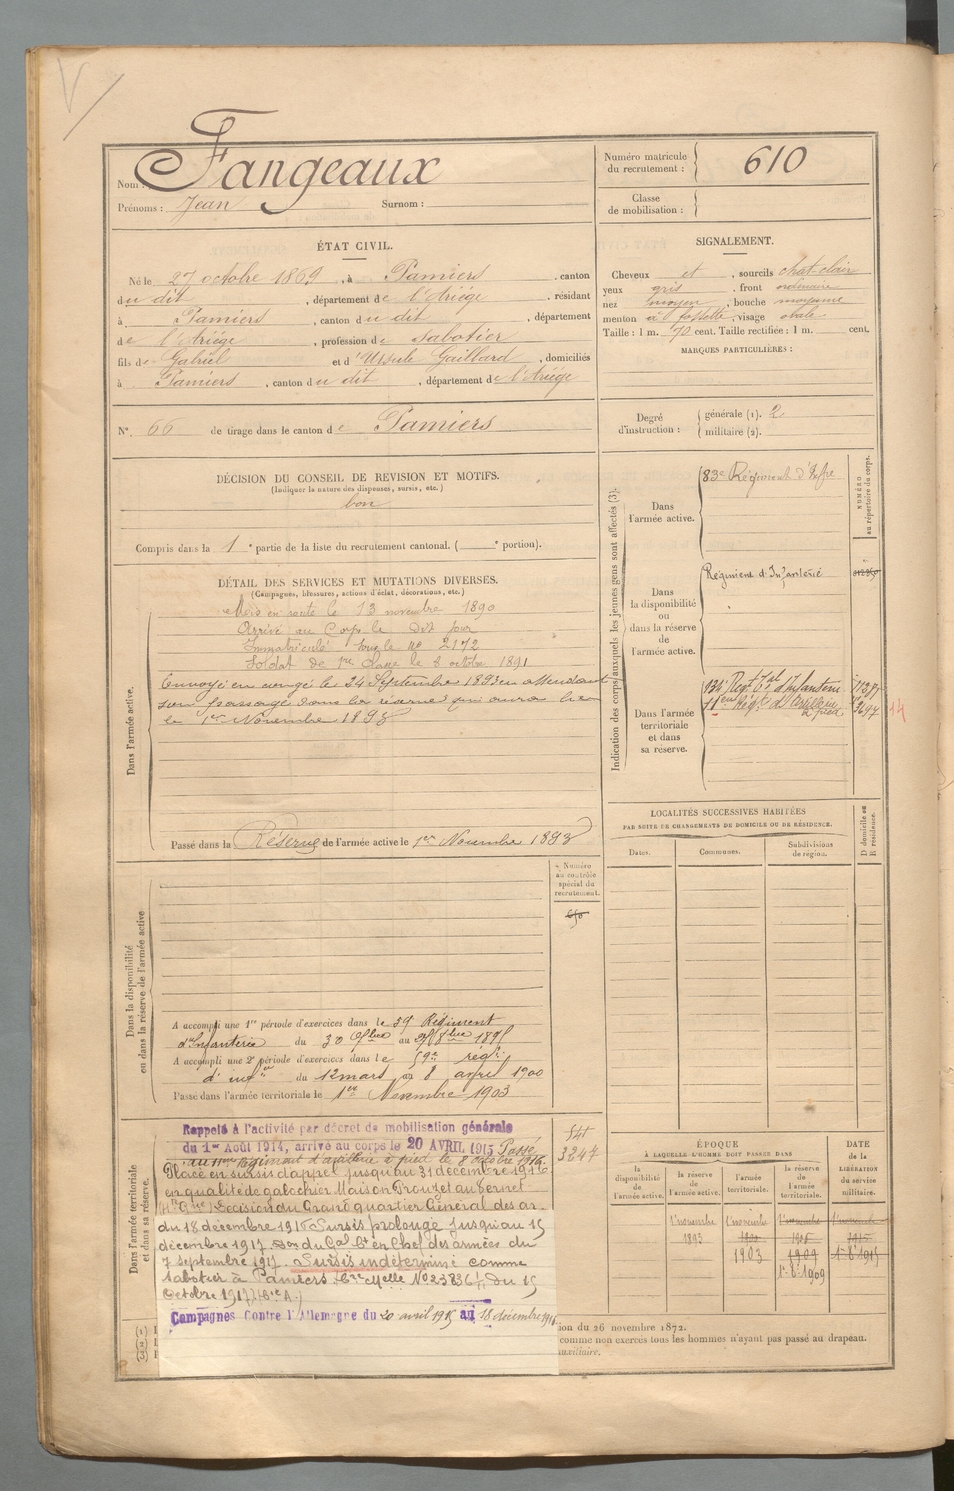 V
Nom : Fangeaux
Prénoms : Jean Surnom :
Numéro matricule du recrutement : 610
Classe de mobilisation :
ÉTAT CIVIL.
Né le 27 octobre 1869, à Pamiers, canton
du dit, département de l'Ariége, résidant
à Pamiers, canton du dit, département
de l'Ariége, profession de sabotier
fils de Gabriel et d'Ursule Gaillard, domiciliés
à Pamiers, canton du dit, département de l'Ariége
N°. 66 de tirage dans le canton de Pamiers
SIGNALEMENT.
Cheveux et, sourcils chat-clair
yeux gris, front ordinaire
nez moyen, bouche moyenne
menton à fossette, visage ovale
Taille : 1 m. 70 cent. Taille rectifiée : 1 m. cent.
MARQUES PARTICULIÈRES :
Degré d'instruction : générale (1). 2
militaire (2).
DÉCISION DU CONSEIL DE REVISION ET MOTIFS.
(Indiquer la nature des dispenses, sursis, etc.)
bon
Compris dans la 1e partie de la liste du recrutement cantonal. ( e portion).
DÉTAIL DES SERVICES ET MUTATIONS DIVERSES.
(Campagnes, blessures, actions d'éclat, décorations, etc.)
Dans l'armée active.
Mis en route le 13 novembre 1890
Arrivé au Corps le dit jour
Immatriculé sous le no 2172
Soldat de 1re classe le 8 octobre 1891
Envoyé en congé le 24 Septembre 1893 en attendant
son passage dans la réserve qui aura lieu
le 1er Novembre 1893
Passé dans la Réserve de l'armée active le 1er Novembre 1893
Indication des corps auxquels les jeunes gens sont affectés (3).
NUMÉRO au répertoire du corps.
Dans l'armée active.
83e Régiment d'Infre
Dans la disponibilité ou dans la réserve de l'armée active.
Régiment d'Infanterie
Dans l'armée territoriale et dans sa réserve.
134e Regt Tal d'Infanterie
11em Régt d'Artillerie
à pied
3697
14
LOCALITÉS SUCCESSIVES HABITÉES
PAR SUITE DE CHANGEMENTS DE DOMICILE OU DE RÉSIDENCE.
Dates. Communes. Subdivisions de région. D domicile ou R résidence.
Dans la disponibilité ou dans la réserve de l'armée active
Numéro au contrôle spécial du recrutement.
A accompli une 1re période d'exercices dans le 59 Régiment
d'Infanterie du 30 7bre au 8bre
A accompli une 2e période d'exercices dans le 59e régt
d'infie du 12 mars au 8 avril 1900
Passé dans l'armée territoriale le 1er Novembre 1903
Dans l'armée territoriale et dans sa réserve.
3247
Rappelé à l'activité par décret de mobilisation générale
du 1er Août 1914, arrivé au corps le 20 AVRIL 1915 Passé
au 11em Régiment d'artillerie à pied le 8 octobre 1916.
Placé en sursis d'appel jusqu'au 31 décembre 1916
en qualité de galochier Maison Prouzet au Vernet
(Hte Gne) Décision du Grand quartier Général des ar-
du 18 décembre 1916 Sursis prolongé jusqu'au 15
décembre 1917. Don du Gal Ct en Chef des armées du
7 septembre 1917. Sursis indéterminé comme
sabotier à Pamiers Cre Mlle No 23836 1/11 du 15
Octobre 1917
Campagnes Contre l'Allemagne du 20 avril 1915 au 18 décembre 1916
ion du 26 novembre 1872.
comme non exercés tous les hommes n'ayant pas passé au drapeau.
auxiliaire.
ÉPOQUE
À LAQUELLE L'HOMME DOIT PASSER DANS
la disponibilité de l'armée active. la réserve de l'armée active. l'armée territoriale. la réserve de l'armée territoriale.
DATE de la LIBÉRATION du service militaire.
1 novembre 1893
1 novembre 1903
1909
1-8-1909
1-8-1915